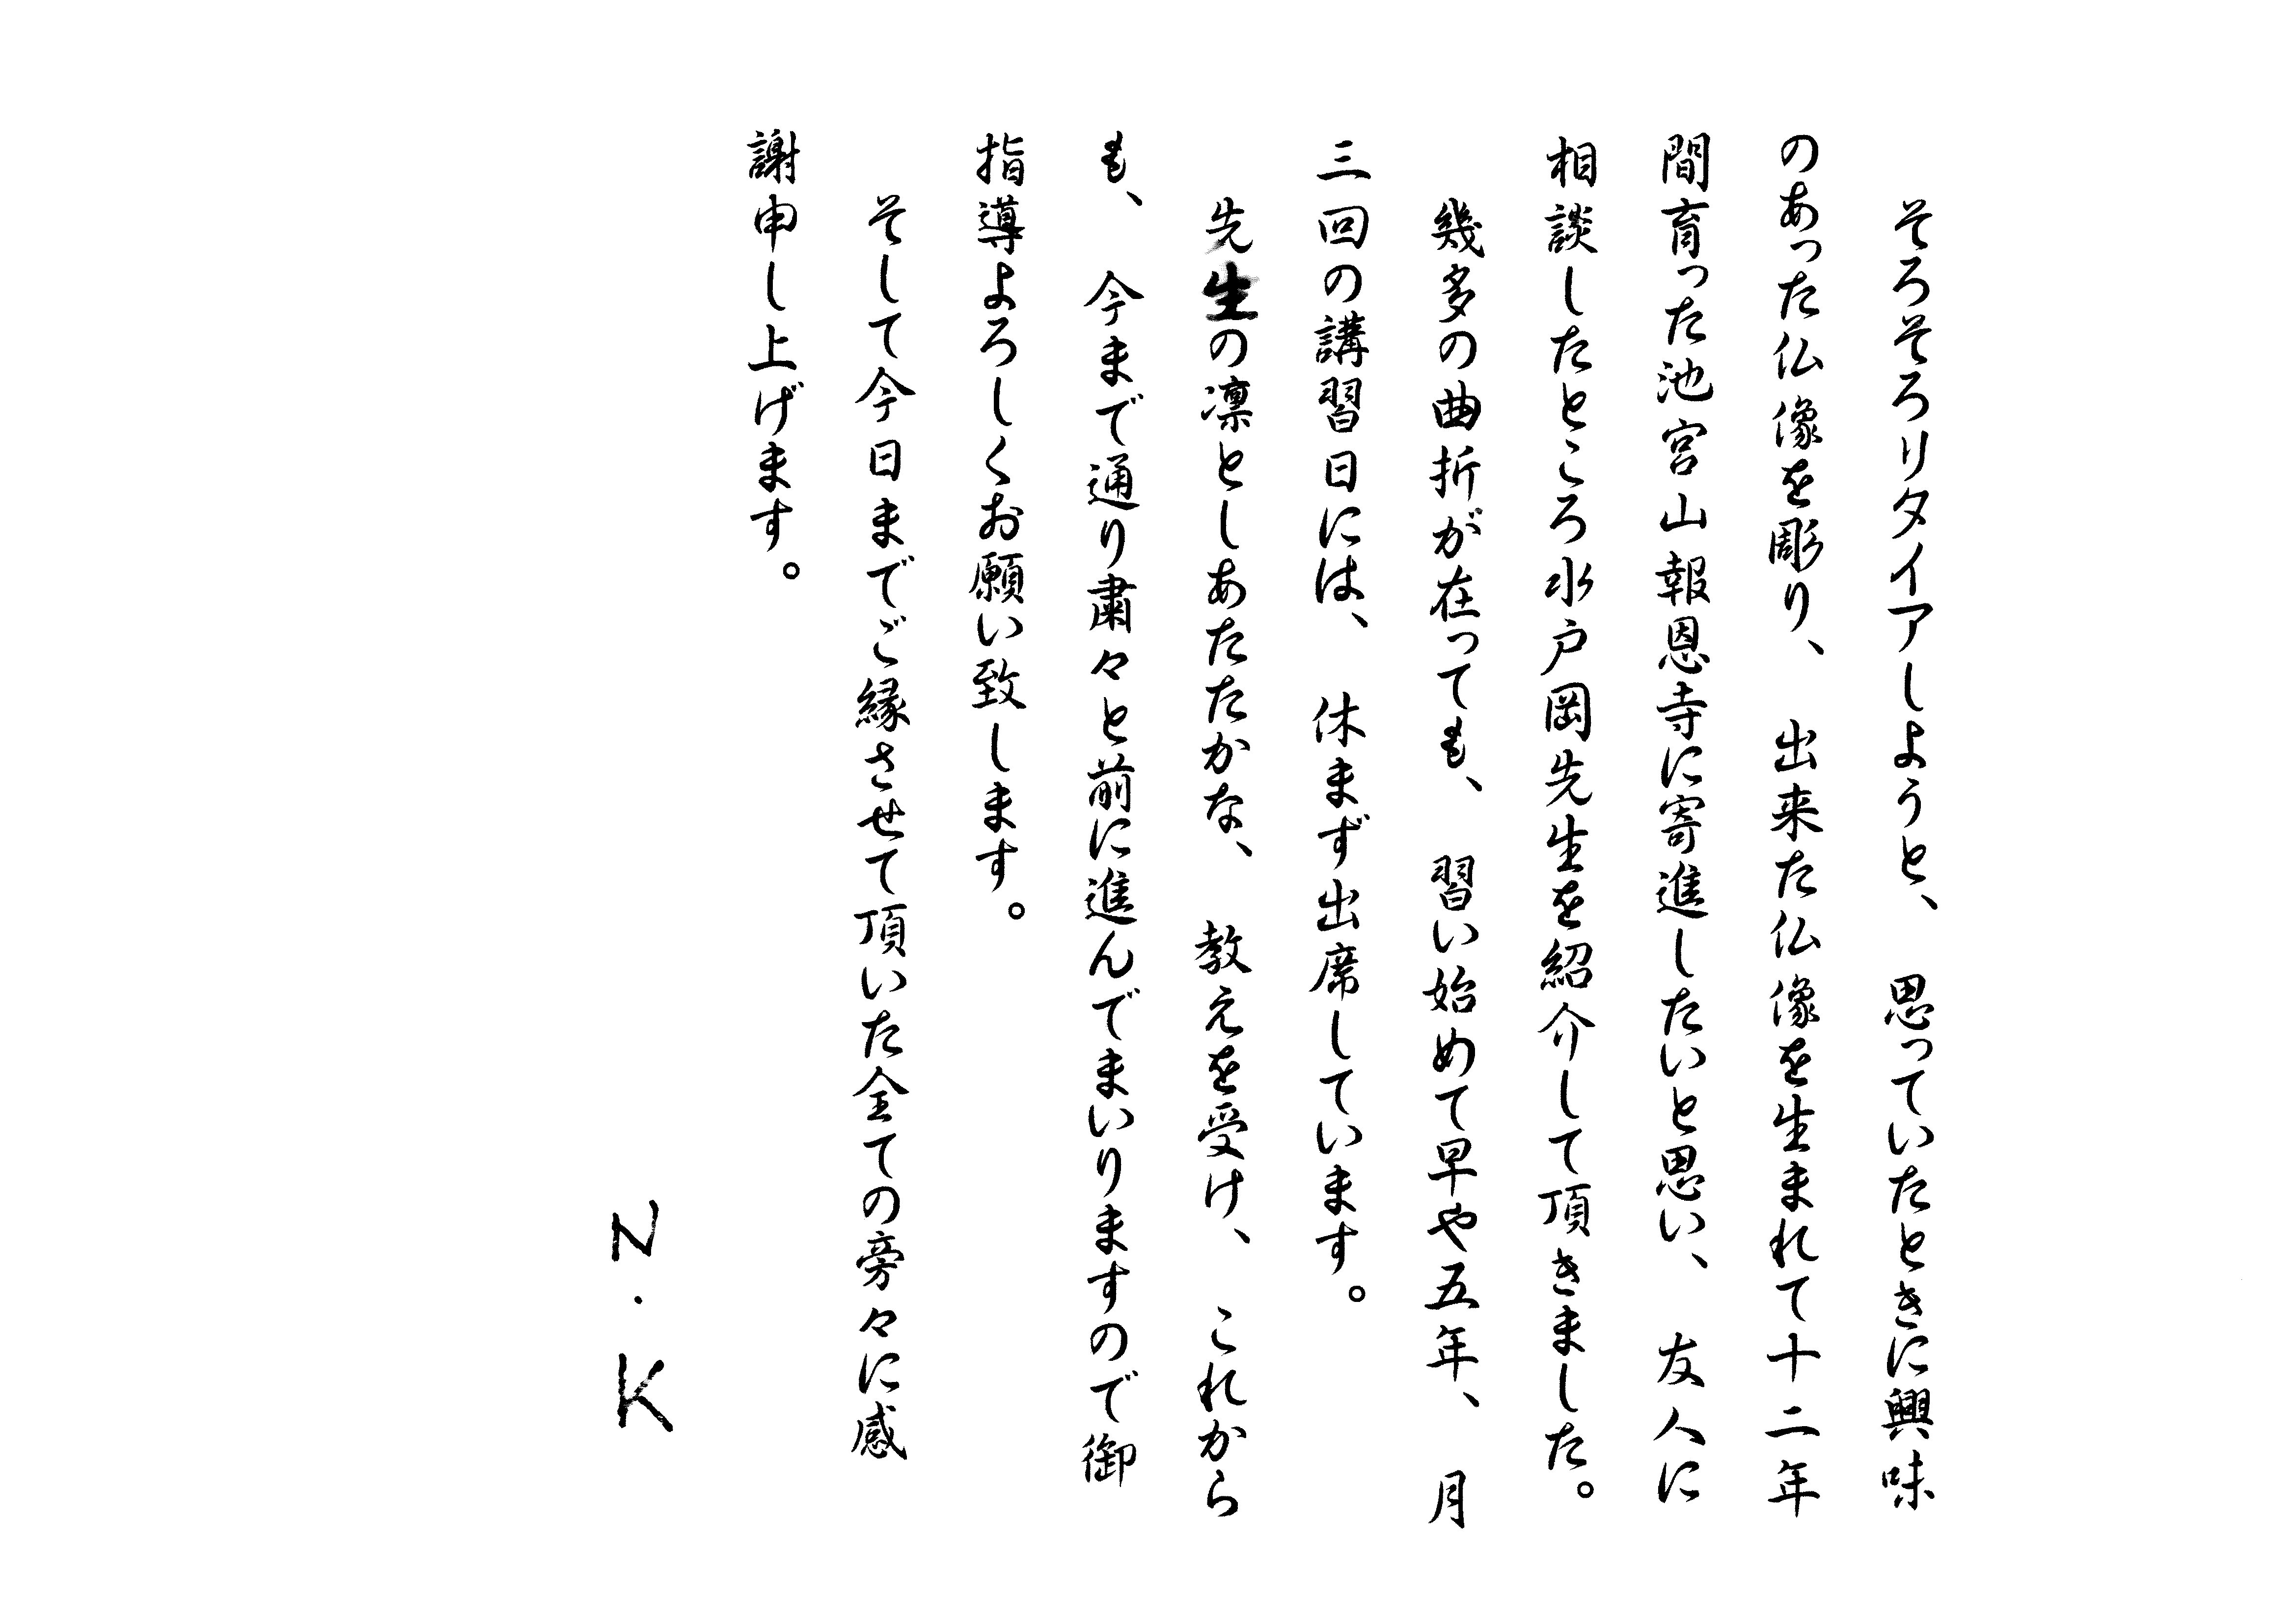 そろそろリタイアしようと、思っていたときに興味
のあった仏像を彫り、出来た仏像を生まれて十二年
間育った池宮山報恩寺に寄進したいと思い、友人に
相談したところ水戸岡先生を紹介して頂きました。
幾多の曲折が在っても、習い始めて早や五年、月
三回の講習日には、休まず出席しています。
先生の凛としあたたかな、教えを受け、これから
も、今まで通り粛々と前に進んでまいりますので御
指導よろしくお願い致します。
そして今日までご縁させて頂いた全ての旁々に感
謝申し上げます。
N・K